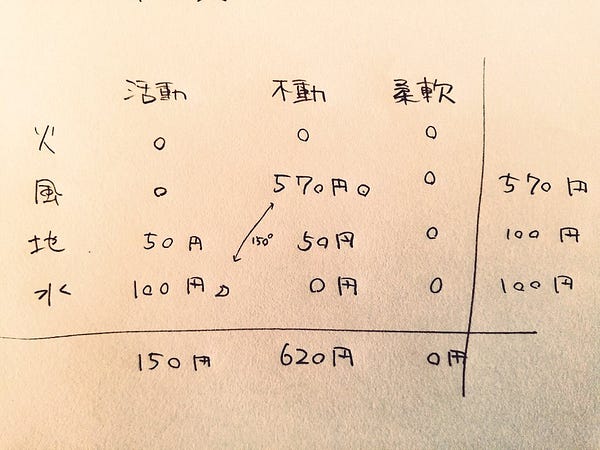 活動 不動 柔軟
火 0 0 0
風 0 570円 0 0 570円
地 50円 50円 0 100円
150°
水 100円 0円 0 100円
150円 620円 0円